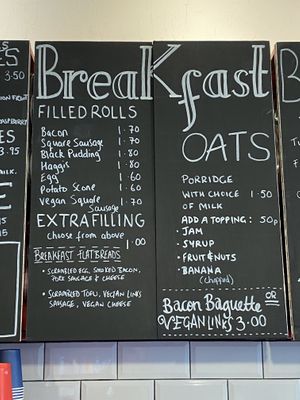 Breakfast
FILLED ROLLS
Bacon 1·70
Square Sausage 1·70
Black Pudding 1·80
Haggis 1·80
Egg 1·60
Potato Scone 1·60
Vegan Square Sausage 1·70
EXTRA FILLING
choose from above
1.00
BREAKFAST FLATBREADS
• SCRAMBLED EGG, SMOKED BACON,
PORK SAUSAGE & CHEESE
• SCRAMBLED TOFU, VEGAN LINKS
SAUSAGE, VEGAN CHEESE
OATS
PORRIDGE
WITH CHOICE 1·50
OF MILK
ADD A TOPPING: 50p
• JAM
• SYRUP
• FRUIT & NUTS
• BANANA
(chopped)
Bacon Baguette OR
VEGAN LINKS 3·00
3.50
3.95